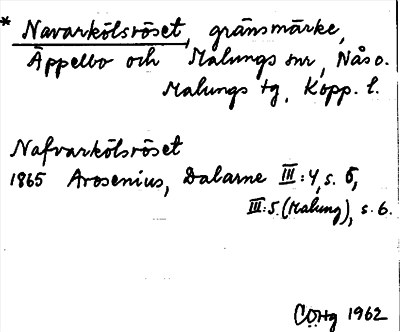 * Navarkölsröset, gränsmärke,
Äppelbo och Malungs snr, Nås o.
Malungs tg, Kopp. l.
Nafvarkölsröset
1865 Arosenius, Dalarne III:4, s. 6,
III:5 (Malung), s. 6.
COHg 1962